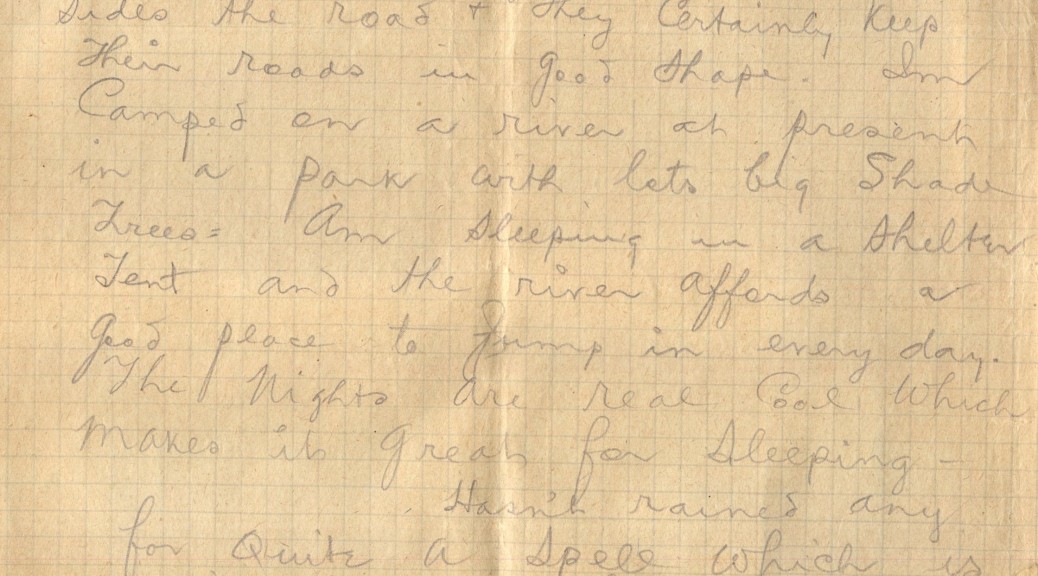 Sides the road + they Certainly Keep
Their roads in good shape. Im
Camped on a river at present
in a park with lots big Shade
Trees= Am Sleeping in a Shelter
Tent and the river affords a
good place to jump in every day.
The Nights are real Cool Which
makes it Great for Sleeping -
Hasn't rained any
for Quite a Spell which is